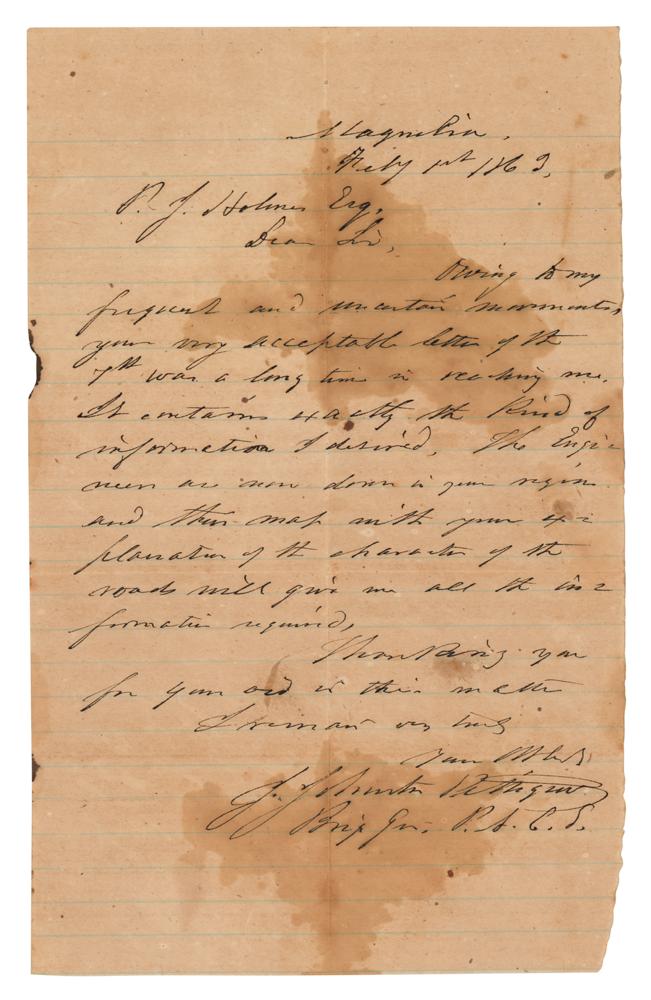 Magnolia,
Feby 1st 1863,
P. J. Holmes Esq,
Dear Sir,
Owing to my
frequent and uncertain movements,
your very acceptable letter of the
7th was a long time in reaching me.
It contains exactly the kind of
information I desired. The Engi=
neers are now down in your region
and their map with your ex=
planation of the character of the
roads will give me all the in=
formation required,
Thanking you
for your aid in this matter
I remain very truly
Your Obt. Svt
J. Johnston Pettigrew
Brig Gen. P. A. C. S.